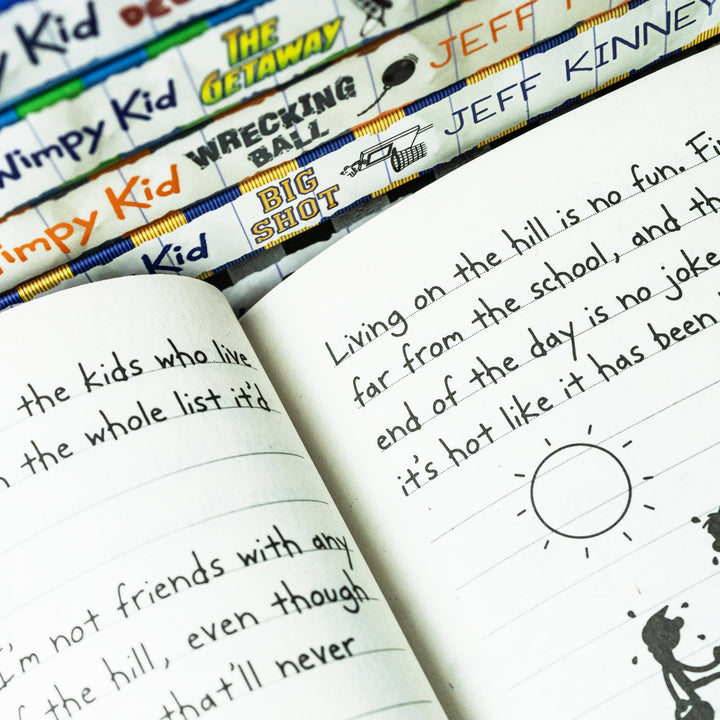 Kid
THE
GETAWAY
Wimpy Kid
WRECKING
BALL
JEFF
Wimpy Kid
BIG
SHOT
JEFF KINNEY
Kid
the kids who live
the whole list it'd
I'm not friends with any
the hill, even though
that'll never
Living on the hill is no fun.
far from the school, and
end of the day is no joke
it's hot like it has been